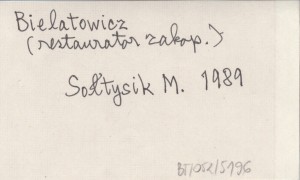 Bielatowicz
(restaurator zakop.)
Sołtysik M. 1989
BT/052/5196